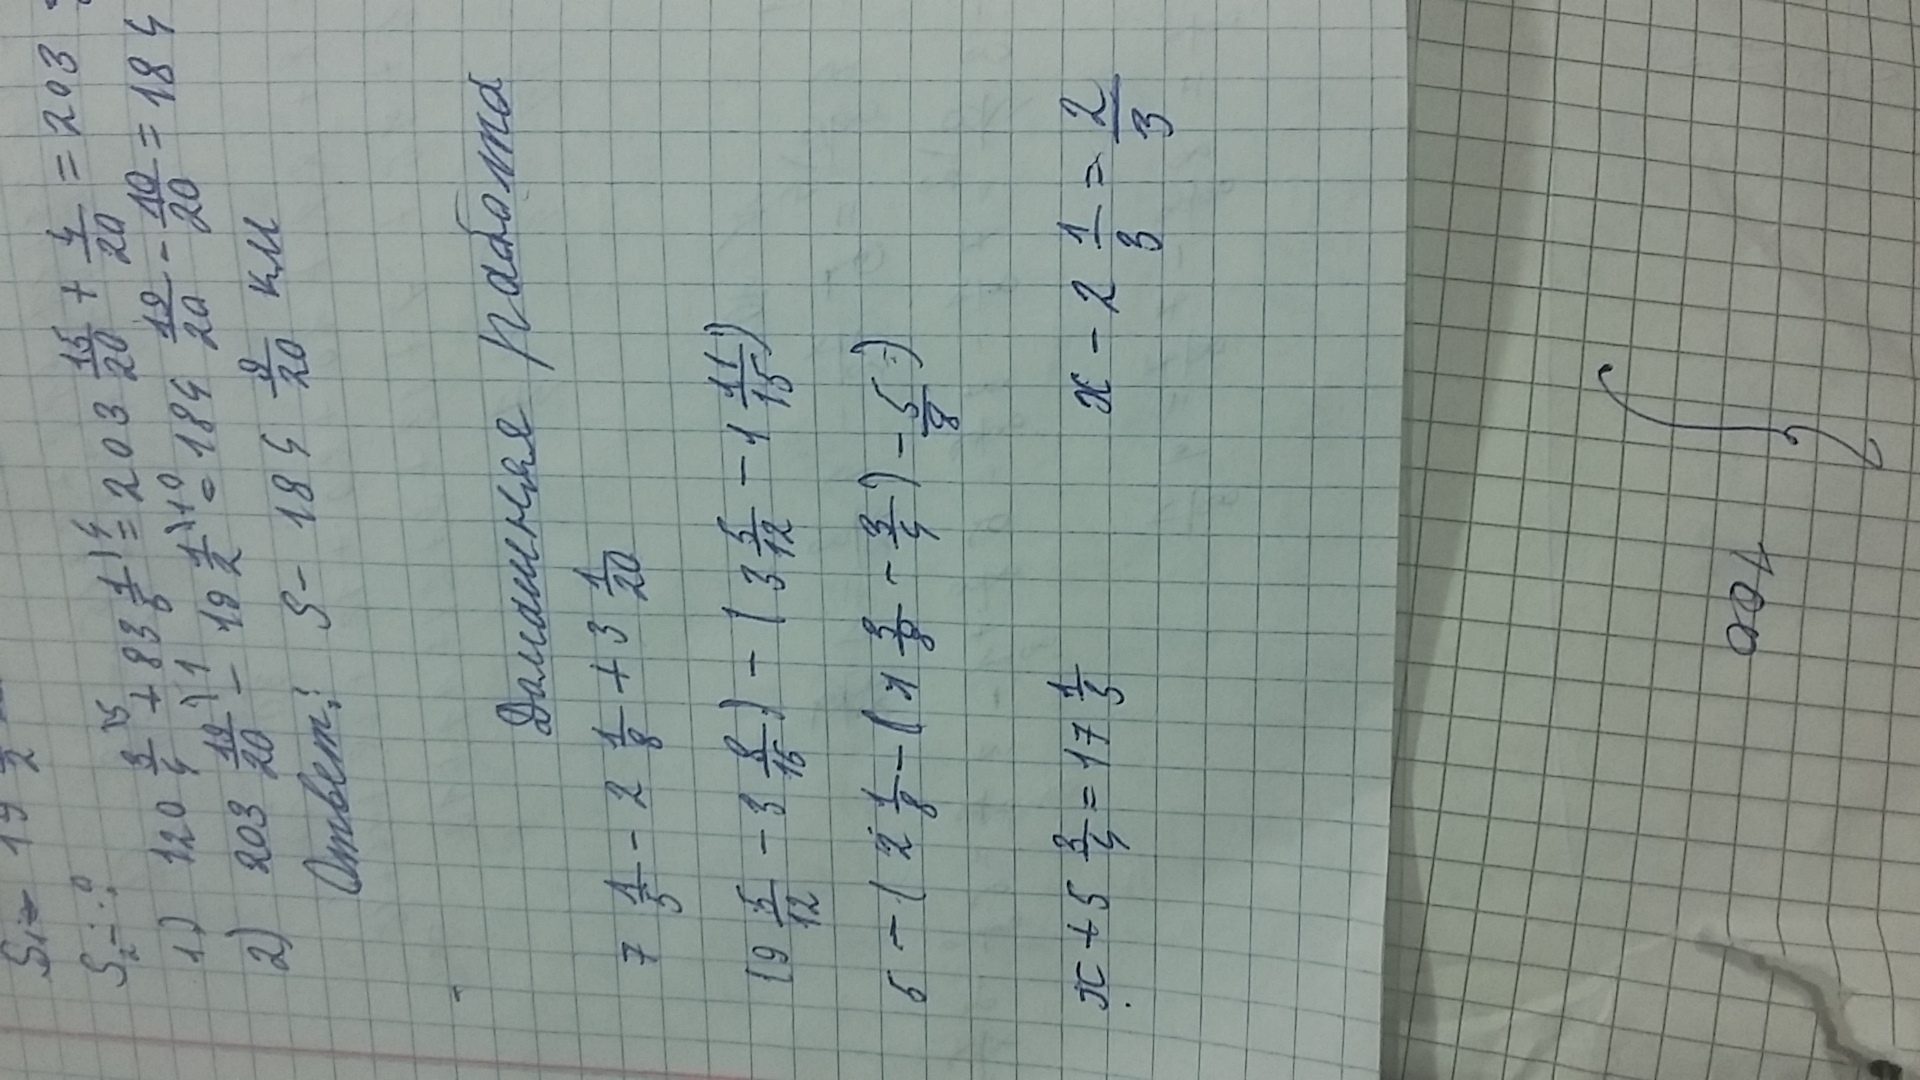 S₁ = 19 1/2
S₂ - ?
1) 120 3/4 + 83 1/5 = 203 15/20 + 4/20 = 203
2) 203 19/20 - 19 1/2 = 184 19/20 - 10/20 = 184
Ответ: S - 184 9/20 км
Домашняя работа
7 1/5 - 2 1/8 + 3 1/20
(9 5/12 - 3 8/15) - (3 5/12 - 1 11/15)
5 - (2 1/8 - (1 3/8 - 3/4) - 5/8)
x + 5 3/4 = 17 1/5 x - 2 1/3 = 2/3